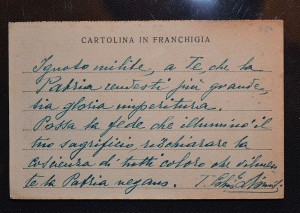 CARTOLINA IN FRANCHIGIA
Ignoto milite, a Te, che la
Patria rendesti più grande,
sia gloria imperitura.
Possa la fede che illuminò il
tuo sacrificio rischiarare la
coscienza di tutti coloro che
te la Patria negano.